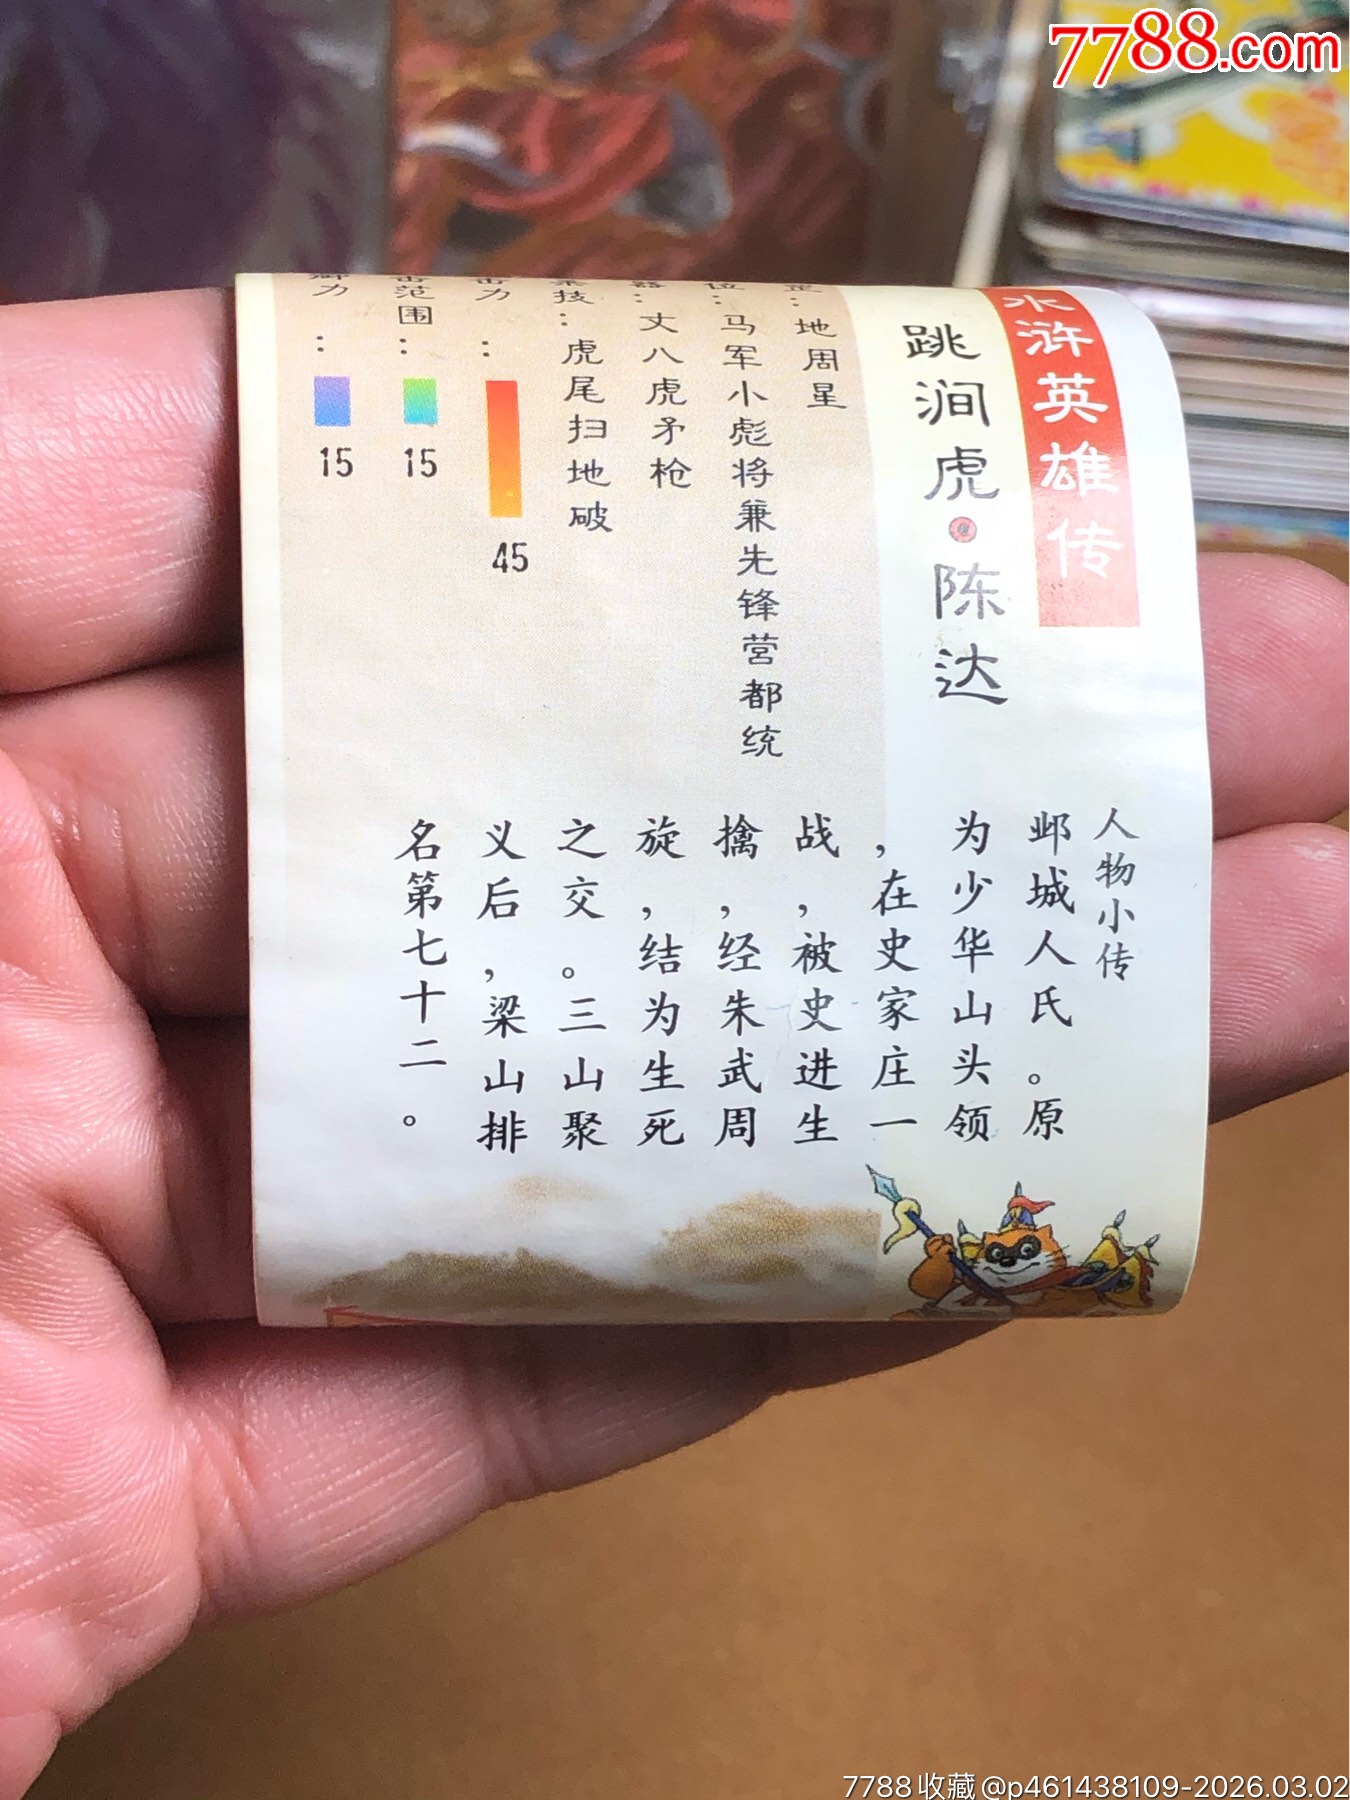 7788.com
水浒英雄传
跳涧虎·陈达
：地周星
位：马军小彪将兼先锋营都统
器：丈八虎矛枪
技：虎尾扫地破
击力：
45
击范围：
15
御力：
15
人物小传
邺城人氏。原
为少华山头领
，在史家庄一
战，被史进生
擒，经朱武周
旋，结为生死
之交。三山聚
义后，梁山排
名第七十二。
7788收藏@p461438109-2026.03.02